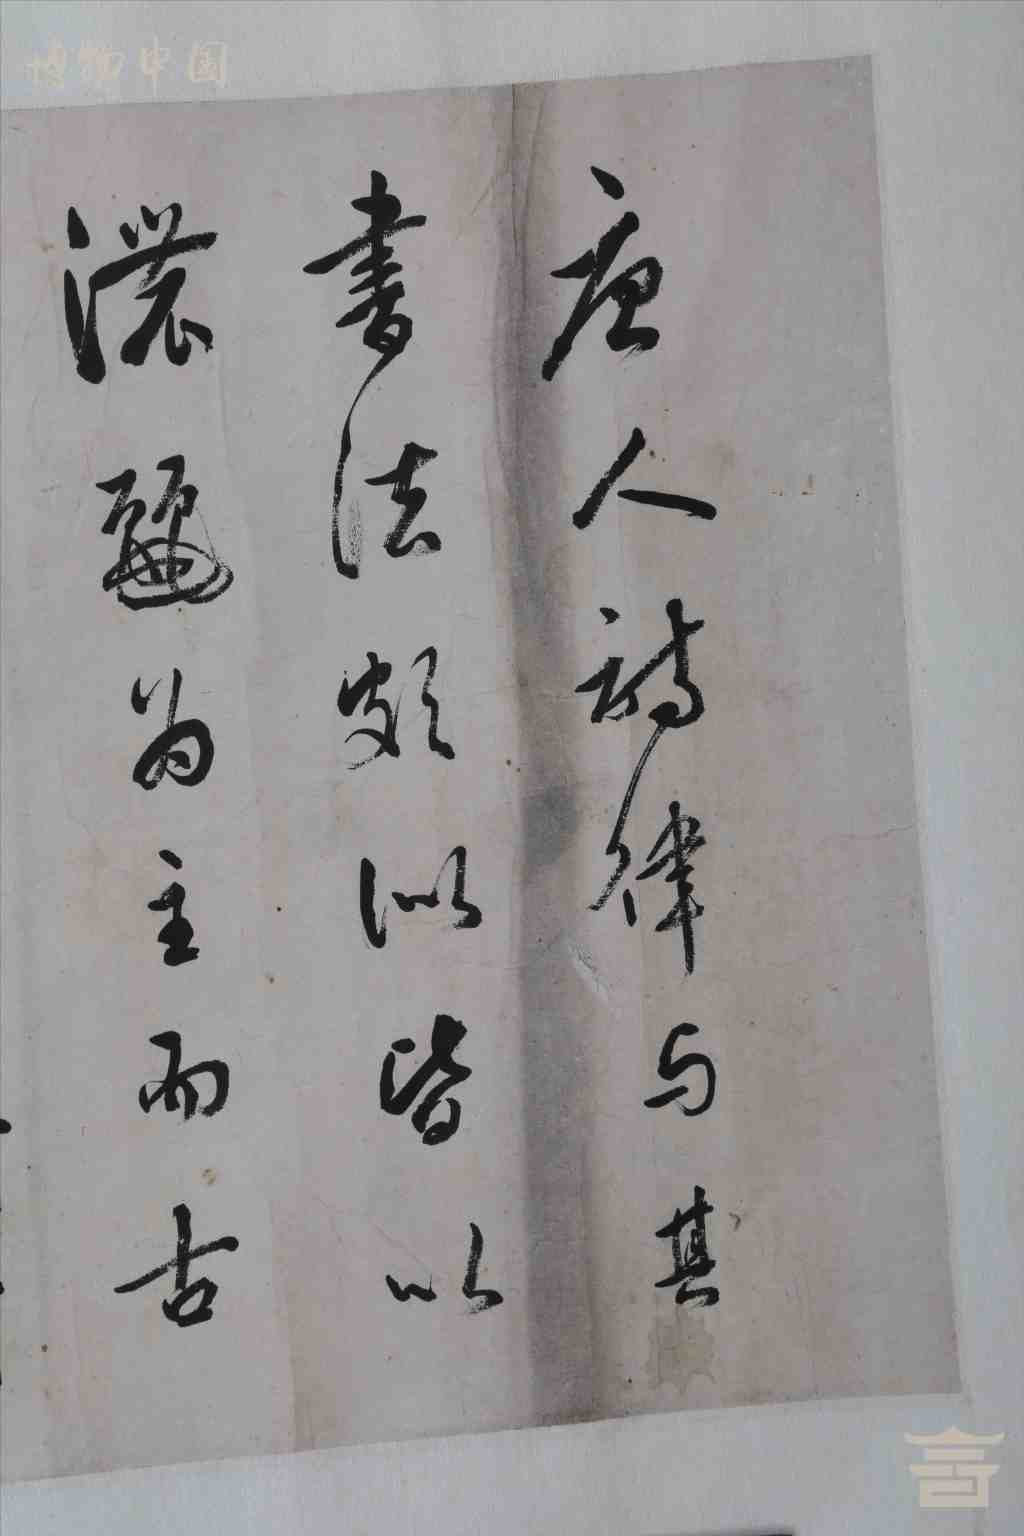 唐人詩律与其
書法頗似皆以
濃麗为主而古
博物中国